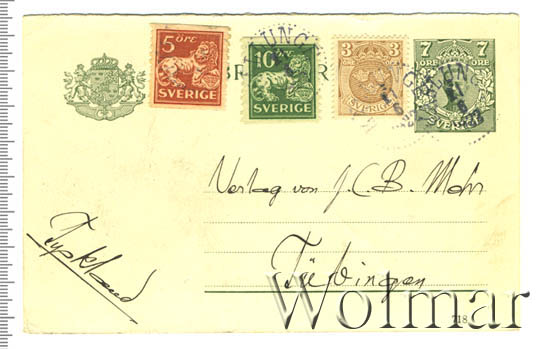 5 ÖRE
SVERIGE
10 ÖRE
SVERIGE
3 3
SVERIGE
7 7
ÖRE ÖRE
SVERIGE
Verlag von J.C.B. Mohr
Tübingen
Tyskland
718
Wolmar